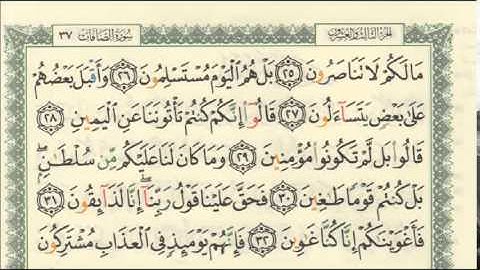 الجزء الثالث والعشرون سورة الصافات ٣٧
مَا لَكُمْ لَا تَنَاصَرُونَ ٢٥ بَلْ هُمُ الْيَوْمَ مُسْتَسْلِمُونَ ٢٦ وَأَقْبَلَ بَعْضُهُمْ
عَلَىٰ بَعْضٍ يَتَسَآءَلُونَ ٢٧ قَالُوٓا۟ إِنَّكُمْ كُنتُمْ تَأْتُونَنَا عَنِ الْيَمِينِ ٢٨
قَالُوا۟ بَل لَّمْ تَكُونُوا۟ مُؤْمِنِينَ ٢٩ وَمَا كَانَ لَنَا عَلَيْكُم مِّن سُلْطَٰنٍۭ ۖ
بَلْ كُنتُمْ قَوْمًا طَٰغِينَ ٣٠ فَحَقَّ عَلَيْنَا قَوْلُ رَبِّنَآ ۖ إِنَّا لَذَآئِقُونَ ٣١
فَأَغْوَيْنَٰكُمْ إِنَّا كُنَّا غَٰوِينَ ٣٢ فَإِنَّهُمْ يَوْمَئِذٍ فِي الْعَذَابِ مُشْتَرِكُونَ